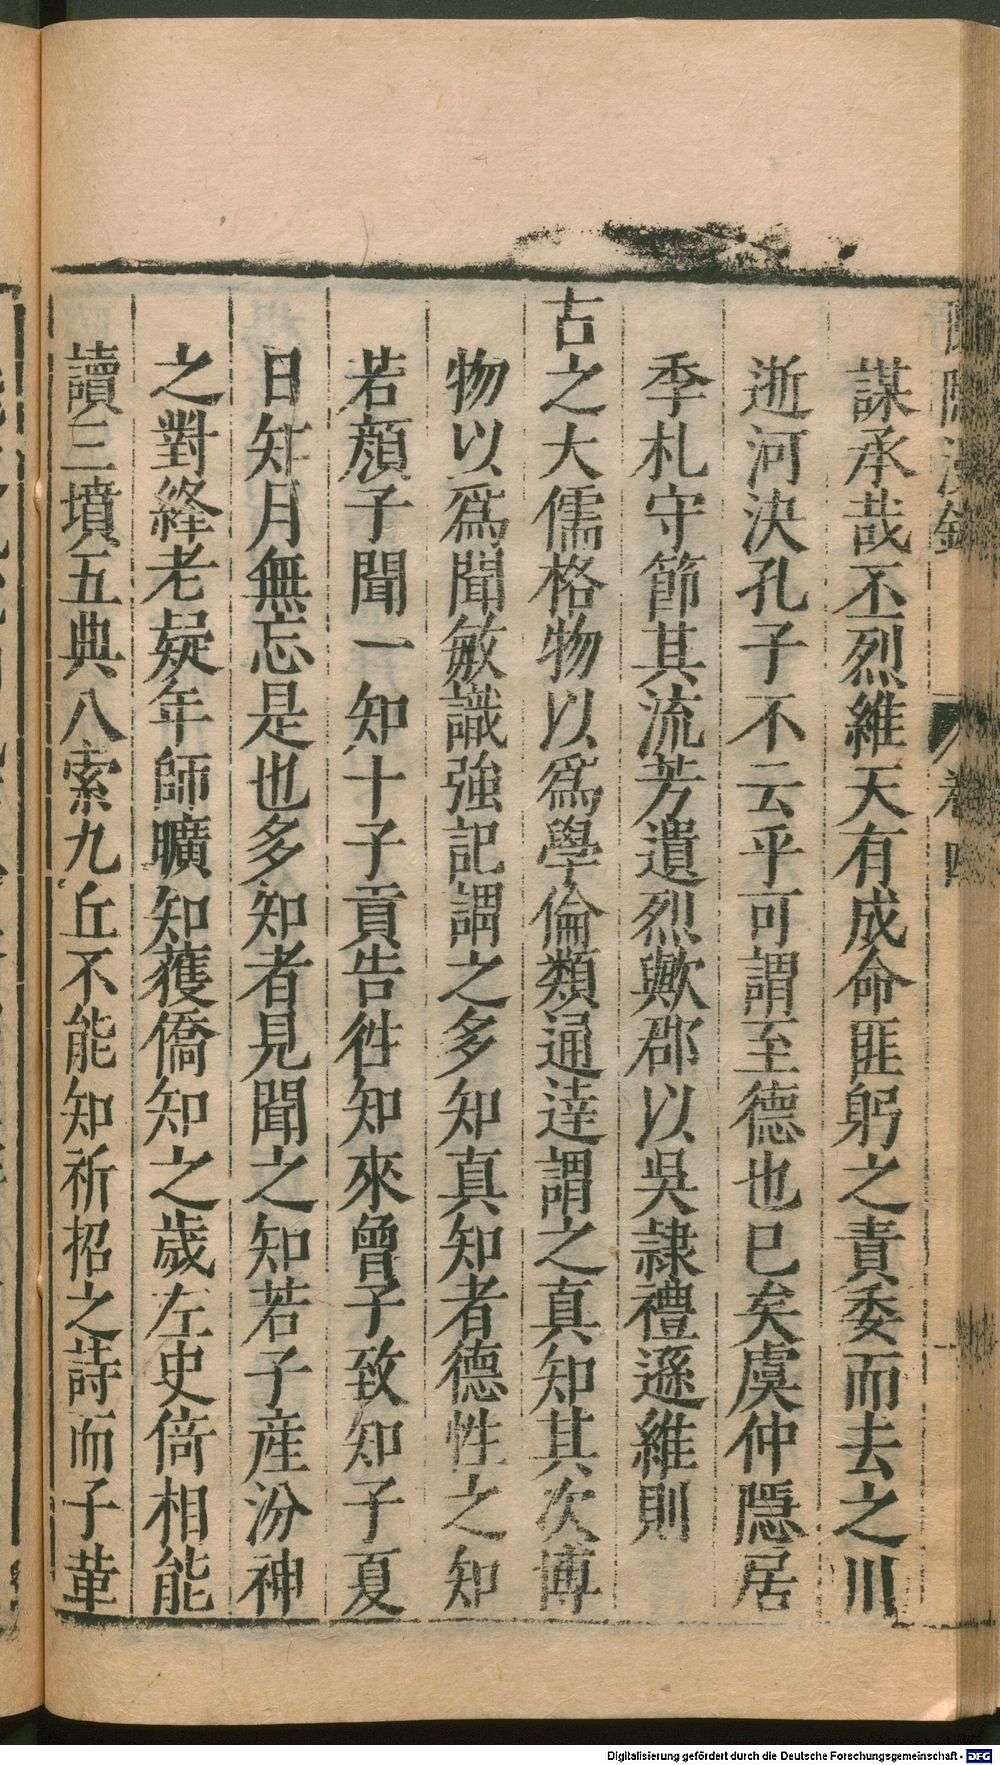 謀承哉丕烈維天有成命匪躬之責委而去之川
逝河決孔子不云乎可謂至德也已矣虞仲隱居
季札守節其流芳遺烈歟郡以吳隷禮遜維則
古之大儒格物以爲學倫類通達謂之真知其次博
物以爲聞敏識強記謂之多知真知者德性之知
若顔子聞一知十子貢告徃知來曾子致知子夏
日知月無忘是也多知者見聞之知若子產汾神
之對絳老疑年師曠知獲僑知之歲左史倚相能
讀三墳五典八索九丘不能知祈招之詩而子革
卷四
Digitalisierung gefördert durch die Deutsche Forschungsgemeinschaft - DFG